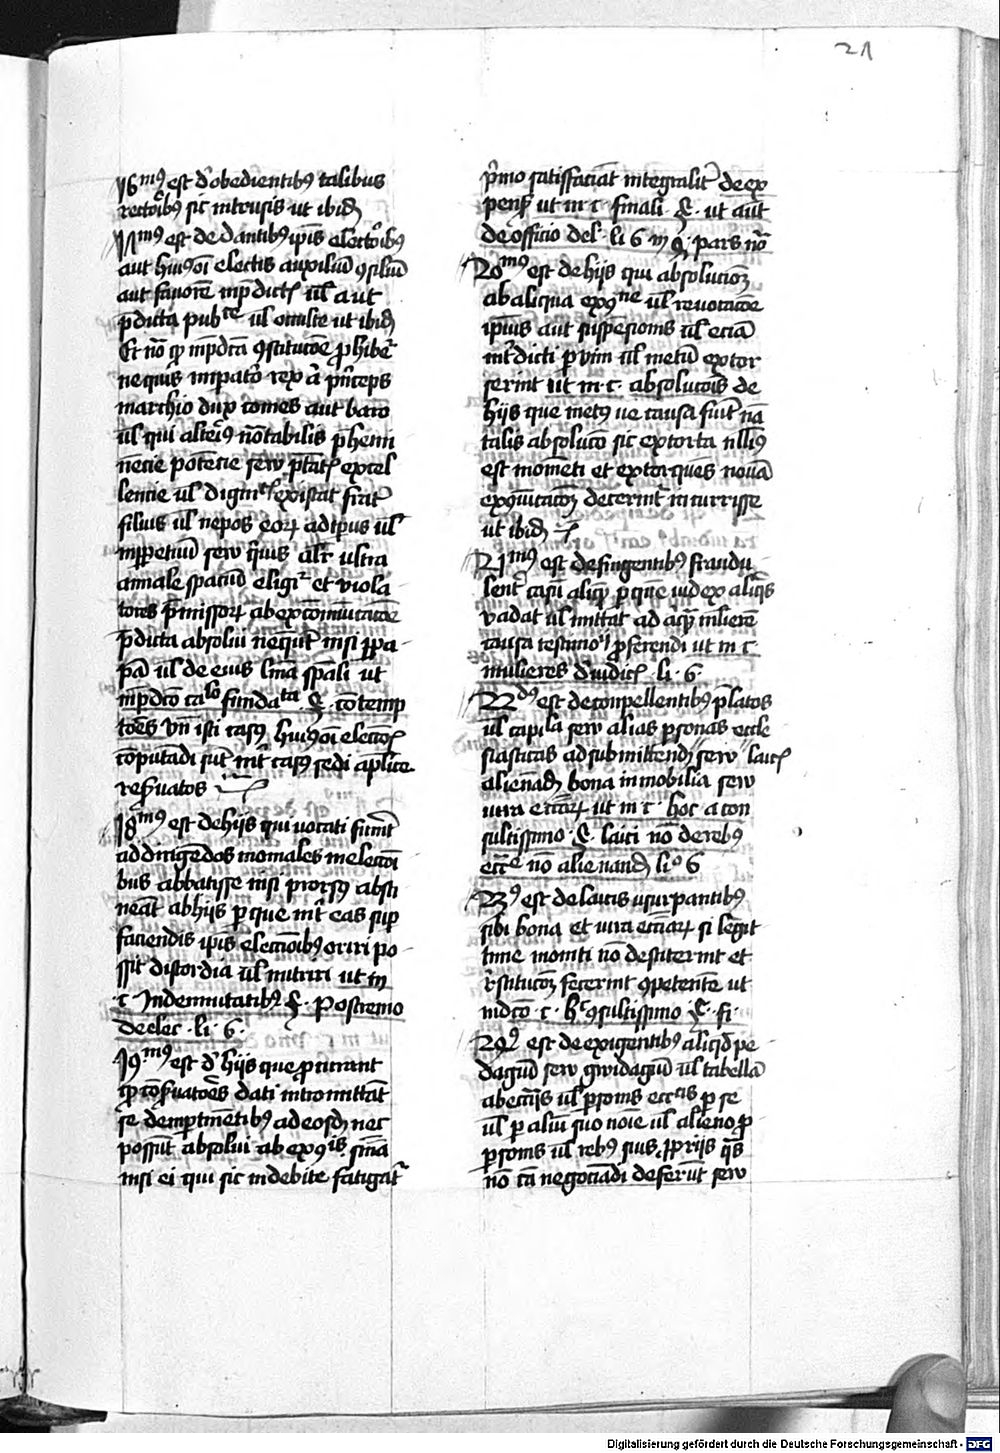 21
16mꝰ est d̕ obedientibꝰ talibus
rectoribꝰ sic intrusis ut ibid̕
17mꝰ est de dantibꝰ ip̄is electorībꝰ
aut huiꝰōi electis auxiliū ꝯsiliū
aut favorē inp̄dict̕ ul̕ aut
p̄dicta pubce ul̕ occulte ut ibid̕
Et nō qꝫ inp̄dc̄a ꝯstitucōe ꝓhibet̕
ne quis inp̄ator rex a̕ pn̄ceps
marchio dux comes aut baro
ul̕ qui alteriꝰ nōtabilis p̄hemi
nēcie potēcie sew p̄tat̕ excel
lencie ul̕ dignit̕ existat frater̕
filius ul̕ nepos eoꝝ ad ip̄us ul̕
inꝑpetuū sew quis alr̕ ultra
annale spaciū eligit̕ et viola
tores p̄missoꝝ ab excōmunicacōe
p̄dicta absolui neq̄unt nisi ꝑ pa
pā ul̕ de eius licn̄a sp̄ali ut
inp̄dc̄o calo fundata §. cōtemp
tōes vn̄ isti casꝰ huiꝰōi elect̕
cōputādi sūt int̕ casꝰ sedi aplīce
resuatos
18mꝰ est de hijs qui vocati fuerīt
ad dirigēdos moniales in electōi
bus abbatisse nisi prorsꝰ absti
neāt ab hijs ꝑ que int̕ eas suꝑ
faciendis ip̄is elecciōibꝰ oriri po
ssit discordia ul̕ nutriri ut in
.c. Indempnitatibꝰ §. Postremo
de elec. li. 6.
19.mꝰ est d̕ hijs que ꝓcurant
qꝫ cōseruatores dati intromittāt
se de inp̄tinentibꝰ ad eosd̕ nec
possūt absolui ab exꝯis sn̄ia
nisi ei qui sic indebite fatigat̕
p̄mo satisfaciāt integralit̕ de ex
pens̕ ut in c. finali §. ut aūt
de officio del. li 6 pars nō
20mꝰ est de hijs qui absolucioꝫ
ab aliqua exꝯne ul̕ revocacōe
ipīus aut suspēsionis ul̕ eciā
int̕dicti ꝑ vim ul̕ metū extor
serint ut in c. absolucōis de
hijs que metꝰ ve causa fiūt nā
talis absolucō sic extorta nlliꝰ
est momēti et extorquēs novā
exꝯicacōꝫ decernit̕ incurrisse
ut ibid̕
21mꝰ est de fingentibꝰ fraudu
lent̕ casū aliqꝫ ꝑ que iudex aliq̄s
vadat ul̕ mittat ad aq̄ꝫ mlierē
causa testimoij ꝓferendi ut in c
mulieres d̕ iudic̕. li. 6.
22dꝰ est de conpellentibꝰ p̄latos
ul̕ capila sew alias ꝑsonas eccle
siasticas ad submittend̕ sew laic̕
alienad̕ bona inmobilia sew
iura eccīaꝝ ut in c. hoc a con
sultissimo. §. laici nō de rebꝰ
ecce nō alienand̕ lio 6
23ꝰ est de laicis usurpantibꝰ
sibi bona et iura eccīaꝝ si legit
time moniti nō destiterint et
r̕stitucōꝫ fecerint ꝯpetentē ut
indc̄o. c. hc ꝯsultissimo §. fi.
24ꝰ est de exigentibꝰ aliqd̕ pe
dagiū sew gwidagiū ul̕ tabellā
ab eccīis ul̕ ꝑsonis eccīcis ꝑ se
ul̕ ꝑ aliū suo noīe ul̕ alieno ꝓ
ꝑsonis ul̕ rebꝰ suis ꝓprijs q̄s
nō cā negociādi deferūt sew
Digitalisierung gefördert durch die Deutsche Forschungsgemeinschaft - DFG